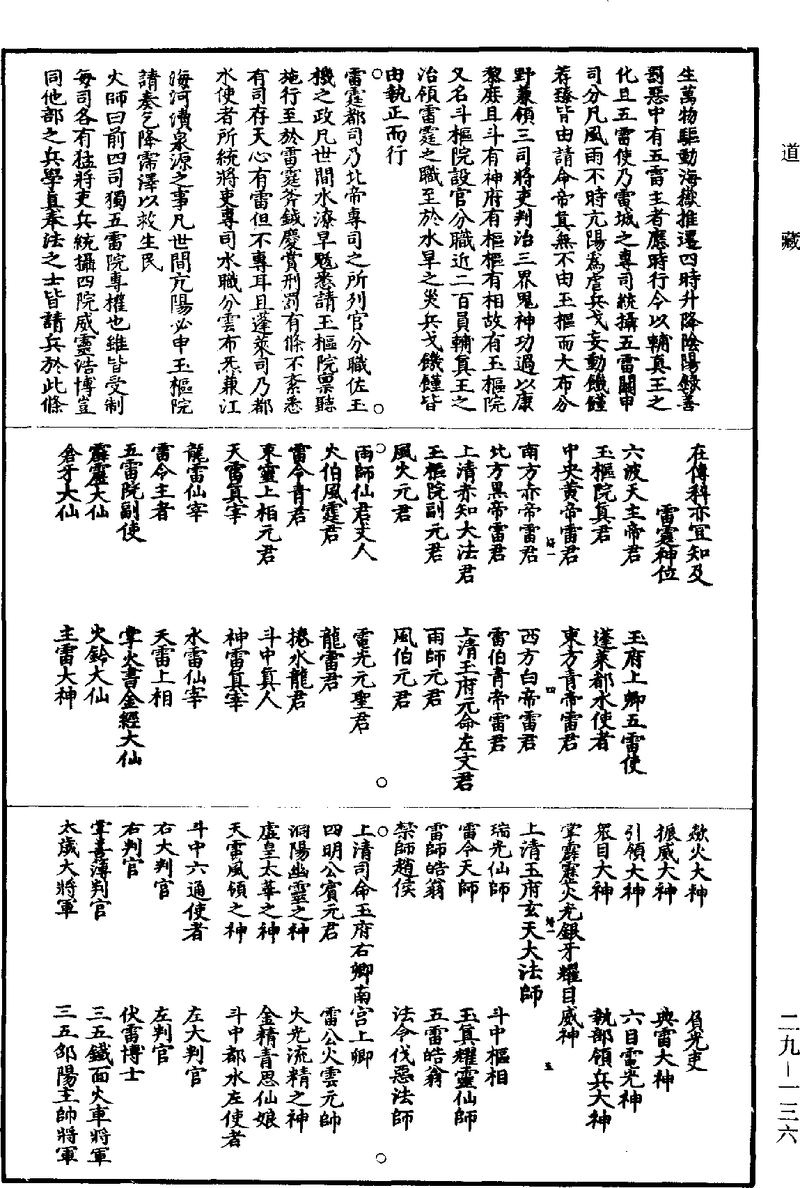 道藏
生萬物驅動海嶽推遷四時升降陰陽錄善
罰惡中有五雷主者應時行令以輔真王之
化且五雷使乃雷城之專司統攝五雷關申
司分凡風雨不時亢陽為虐兵戈妄動饑饉
荐臻皆由請命帝真無不由玉樞而大布分
野兼領三司將吏判治三界鬼神功過以康
黎庶且斗有神府有樞樞有相故有玉樞院
又名斗樞院設官分職近二百員輔真王之
治領雷霆之職至於水旱之災兵戈饑饉皆
由執正而行
○雷霆都司乃北帝專司之所列官分職佐玉
機之政凡世間水潦旱魃悉請玉樞院稟聽
施行至於雷霆斧鉞慶賞刑罰有條不紊悉
有司存天心有雷但不專耳且蓬萊司乃都
水使者所統將吏專司水職分雲布炁兼江
海河瀆泉源之事凡世間亢陽必申玉樞院
請奏乞降霈澤以救生民
火師曰前四司獨五雷院專權也雖皆受制
每司各有猛將吏兵統攝四院威靈浩博豈
同他部之兵學真奉法之士皆請兵於此條
在傳科亦宜知及
雷霆神位
六波天主帝君
玉府上卿五雷使
玉樞院真君
蓬萊都水使者
中央黃帝雷君
東方青帝雷君
南方赤帝雷君
西方白帝雷君
北方黑帝雷君
雷伯青帝雷君
上清亦知大法君
上清玉府元命左文君
玉樞院副元君
雨師元君
風火元君
風伯元君
雨師仙君丈人
電光元聖君
火伯風霆君
龍雷君
雷令青君
捲水龍君
東靈上相元君
斗中真人
天雷真宰
神雷真宰
龍雷仙宰
水雷仙宰
雷令主者
天雷上相
五雷院副使
掌火書金經大仙
霹靂大仙
火鈴大仙
倉牙大仙
主雷大神
歘火大神
負光吏
振威大神
典雷大神
引領大神
六目電光神
眾目大神
執部領兵大神
掌霹靂火光銀牙耀目威神
上清玉府玄天大法師
瑞光仙師
斗中樞相
雷令天師
玉真耀靈仙師
雷師皓翁
五雷皓翁
禁師趙侯
法令伐惡法師
上清司命玉府右卿南宮上卿
四明公賓元君
雷公火雲元帥
洞陽幽靈之神
火光流精之神
虛皇太華之神
金精青思仙娘
天雷風領之神
斗中都水左使者
斗中六通使者
左大判官
右大判官
左判官
右判官
伏雷博士
掌善簿判官
三五鐵面火車將軍
太歲大將軍
三五邵陽主帥將軍
二九—一三六